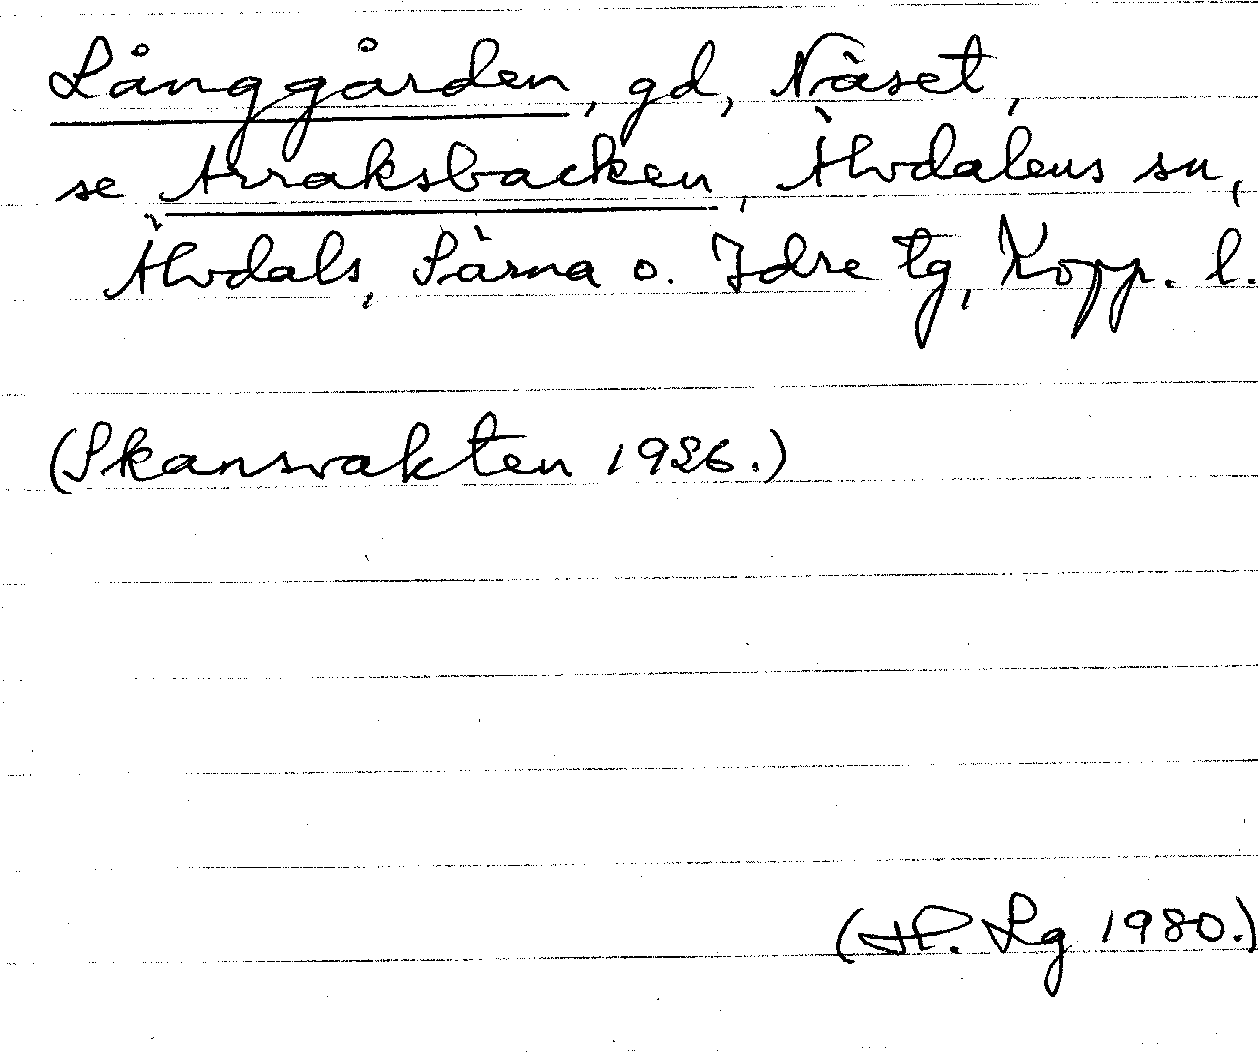 Långgården, gd, Näset,
se Arraksbacken, Älvdalens sn,
Älvdals, Särna o. Idre tg, Kopp. l.
(Skansvakten 1926.)
(H. Lg 1980.)